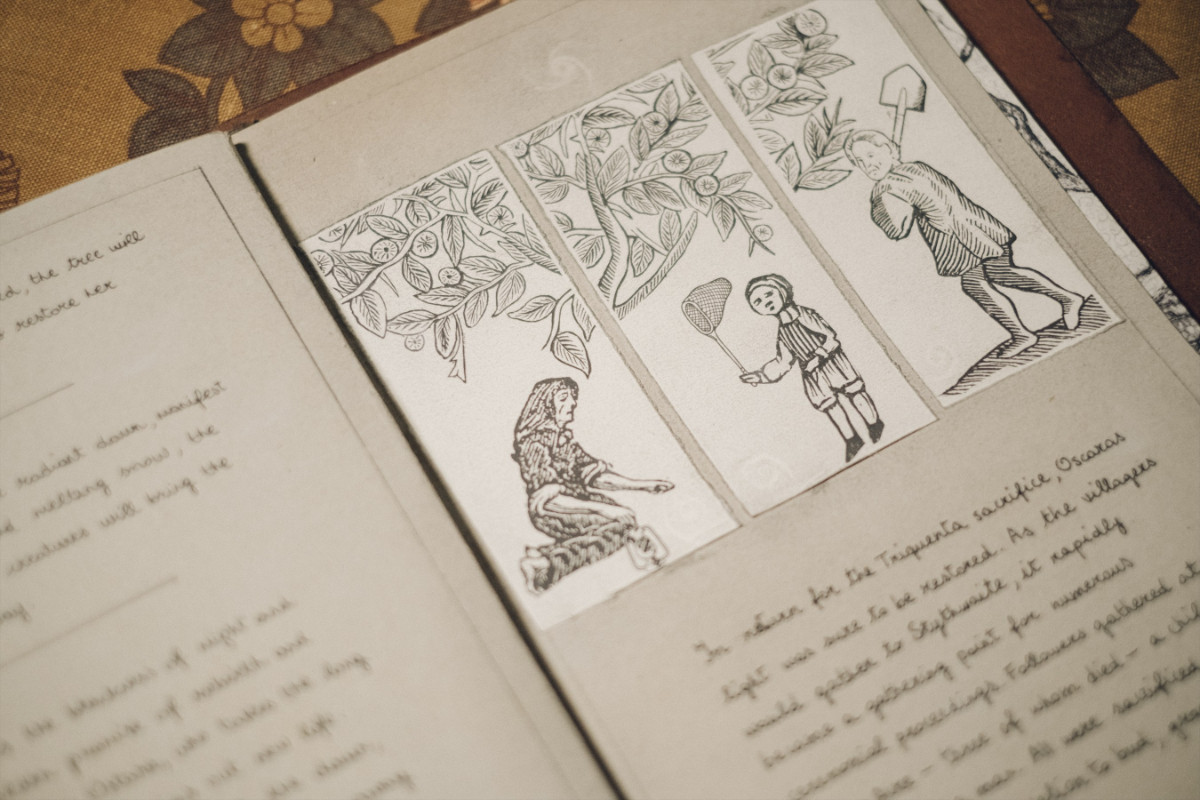 the tree will
restore her
radiant dawn, manifest
melting snow, the
creatures will bring the
the blackness of night and
promise of rebirth and
Nature, who takes the long
out new life.
dawn,
In return for the Triquenta sacrifice, Oscaras
light was sure to be restored. As the villagers
would gather to Slythwaite, it rapidly
became a gathering point for numerous
ceremonial proceedings. Followers gathered at
- three of whom died - a
was. All were sacrificed
to bud,